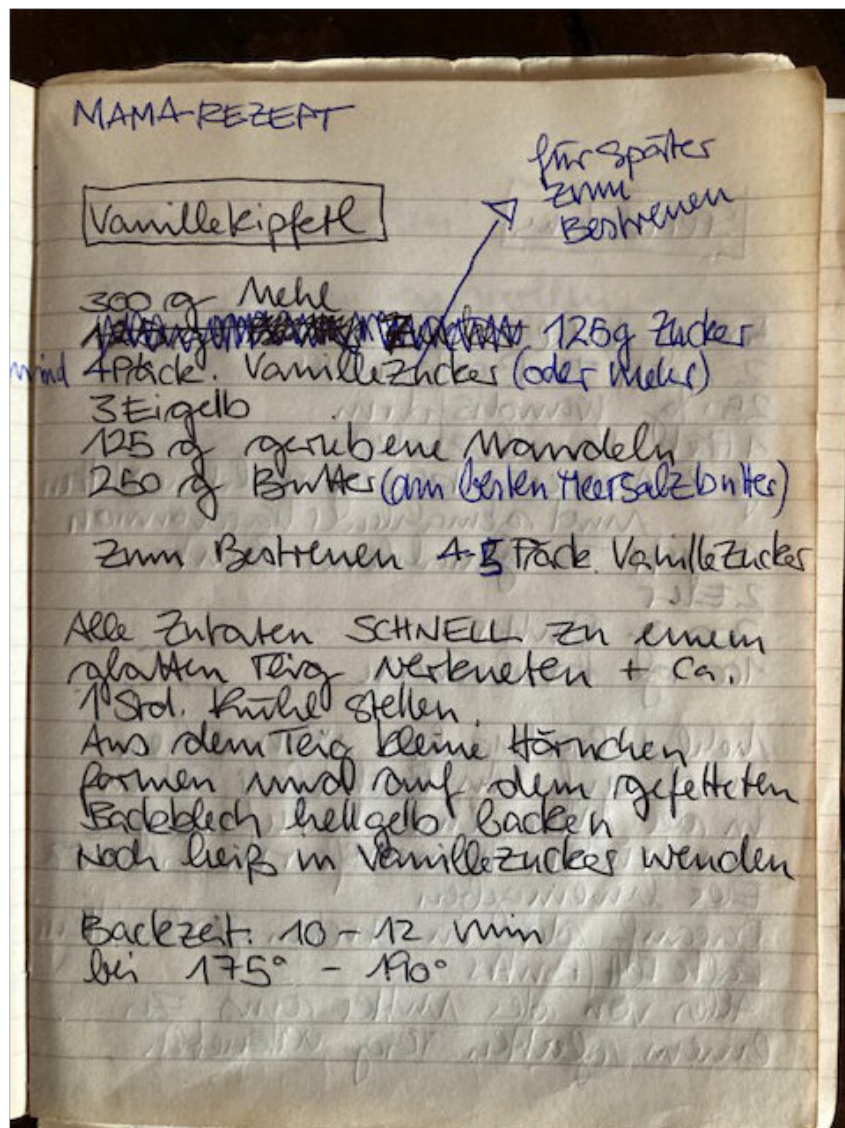 MAMA-REZEPT
für später
zum
Bestreuen
Vanillekipferl
300 g Mehl
125g Zucker
4 Päck. Vanillezucker (oder mehr)
3 Eigelb
125 g geriebene Mandeln
250 g Butter (am besten Meersalzbutter)
Zum Bestreuen 4-5 Päck. Vanillezucker
Alle Zutaten SCHNELL zu einem
glatten Teig verkneten + ca.
1 Std. kühl stellen.
Aus dem Teig kleine Hörnchen
formen und auf dem gefetteten
Backblech hellgelb backen
Noch heiß in Vanillezucker wenden
Backzeit: 10-12 min
bei 175° - 190°